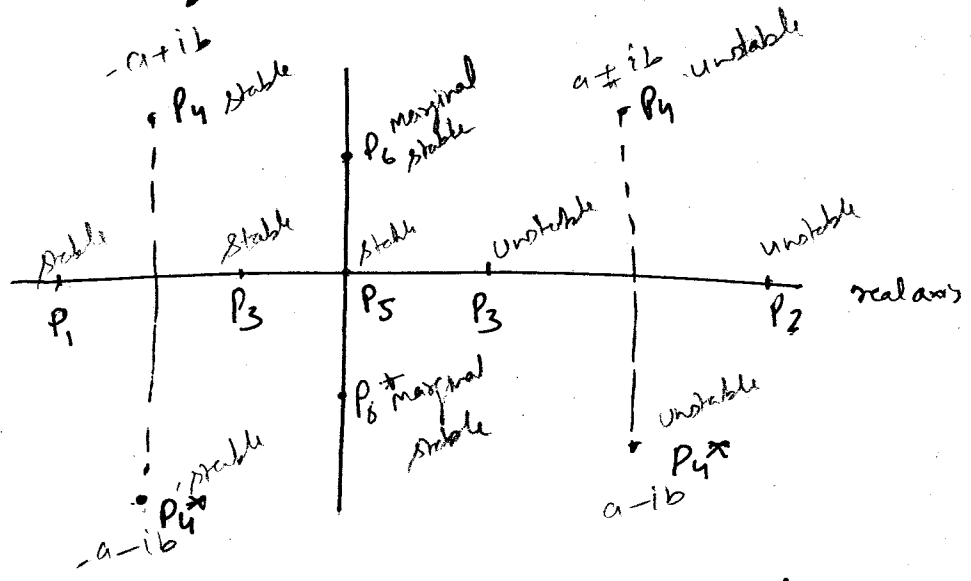 -a+ib
P4 stable
P6 marginal
stable
a±ib unstable
P4
stable
stable
stable
unstable
unstable
P1
P3
P5
P3
P2
real axis
P6* marginal
stable
unstable
P4*
a-ib
stable
P4*
-a-ib